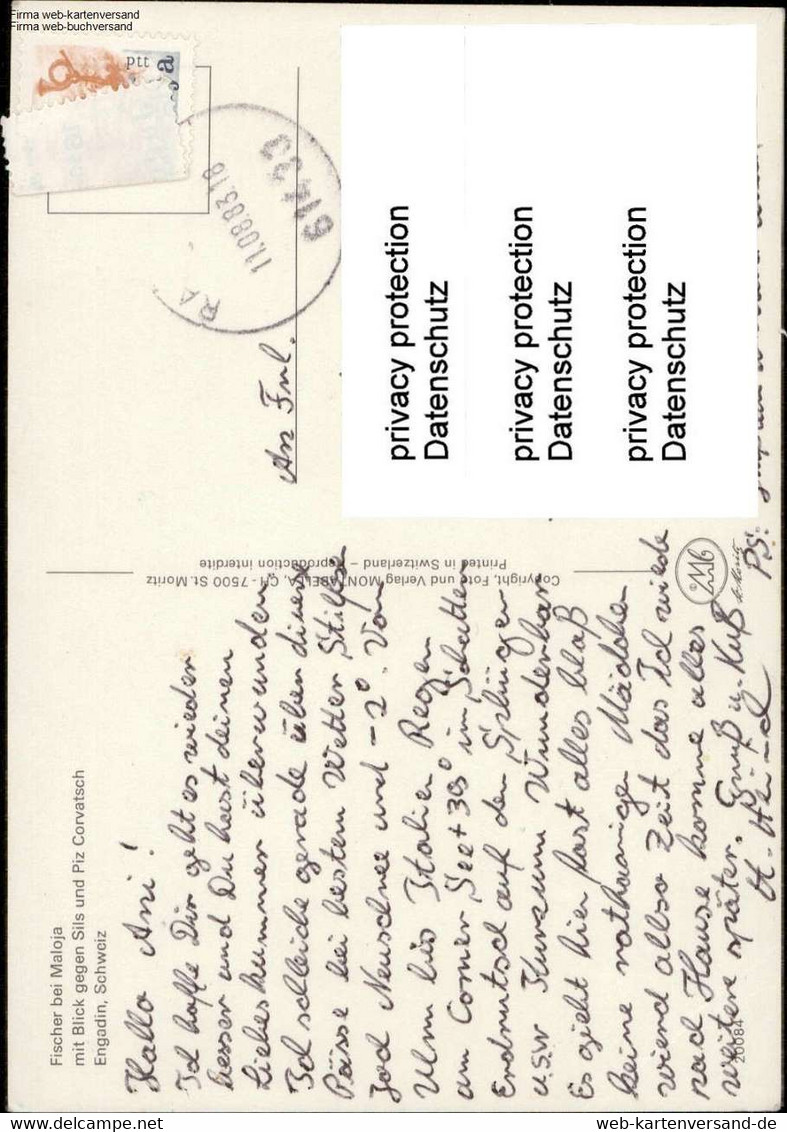 Firma web-kartenversand
Firma web-buchversand
ptt
a
11.08.83.18
61433
RA
An Frl.
privacy protection
Datenschutz
privacy protection
Datenschutz
privacy protection
Datenschutz
Copyright, Foto und Verlag MONTABELLA, CH - 7500 St. Moritz
Printed in Switzerland – reproduction interdite
St. Moritz
Fischer bei Maloja
mit Blick gegen Sils und Piz Corvatsch
Engadin, Schweiz
Hallo Ani!
Ich hoffe Dir geht es wieder
besser und Du hast deinen
Liebeskummer überwunden.
Ich schleiche gerade über diverse
Pässe bei bestem Wetter Stilfser
Joch Neuschnee und -2° Von
Ulm bis Italien Regen
am Comer See +39° im Schatten
Erdrutsch auf den Splügen
u.s.w Kurzum Wunderbar
Es gieht hier fast alles bloß
keine rothaarigen Mädchen
wierd allso Zeit das Ich wieder
nach Hause komme alles
weitere später. Gruß u. Kuß
PS:
20084
web-kartenversand-de